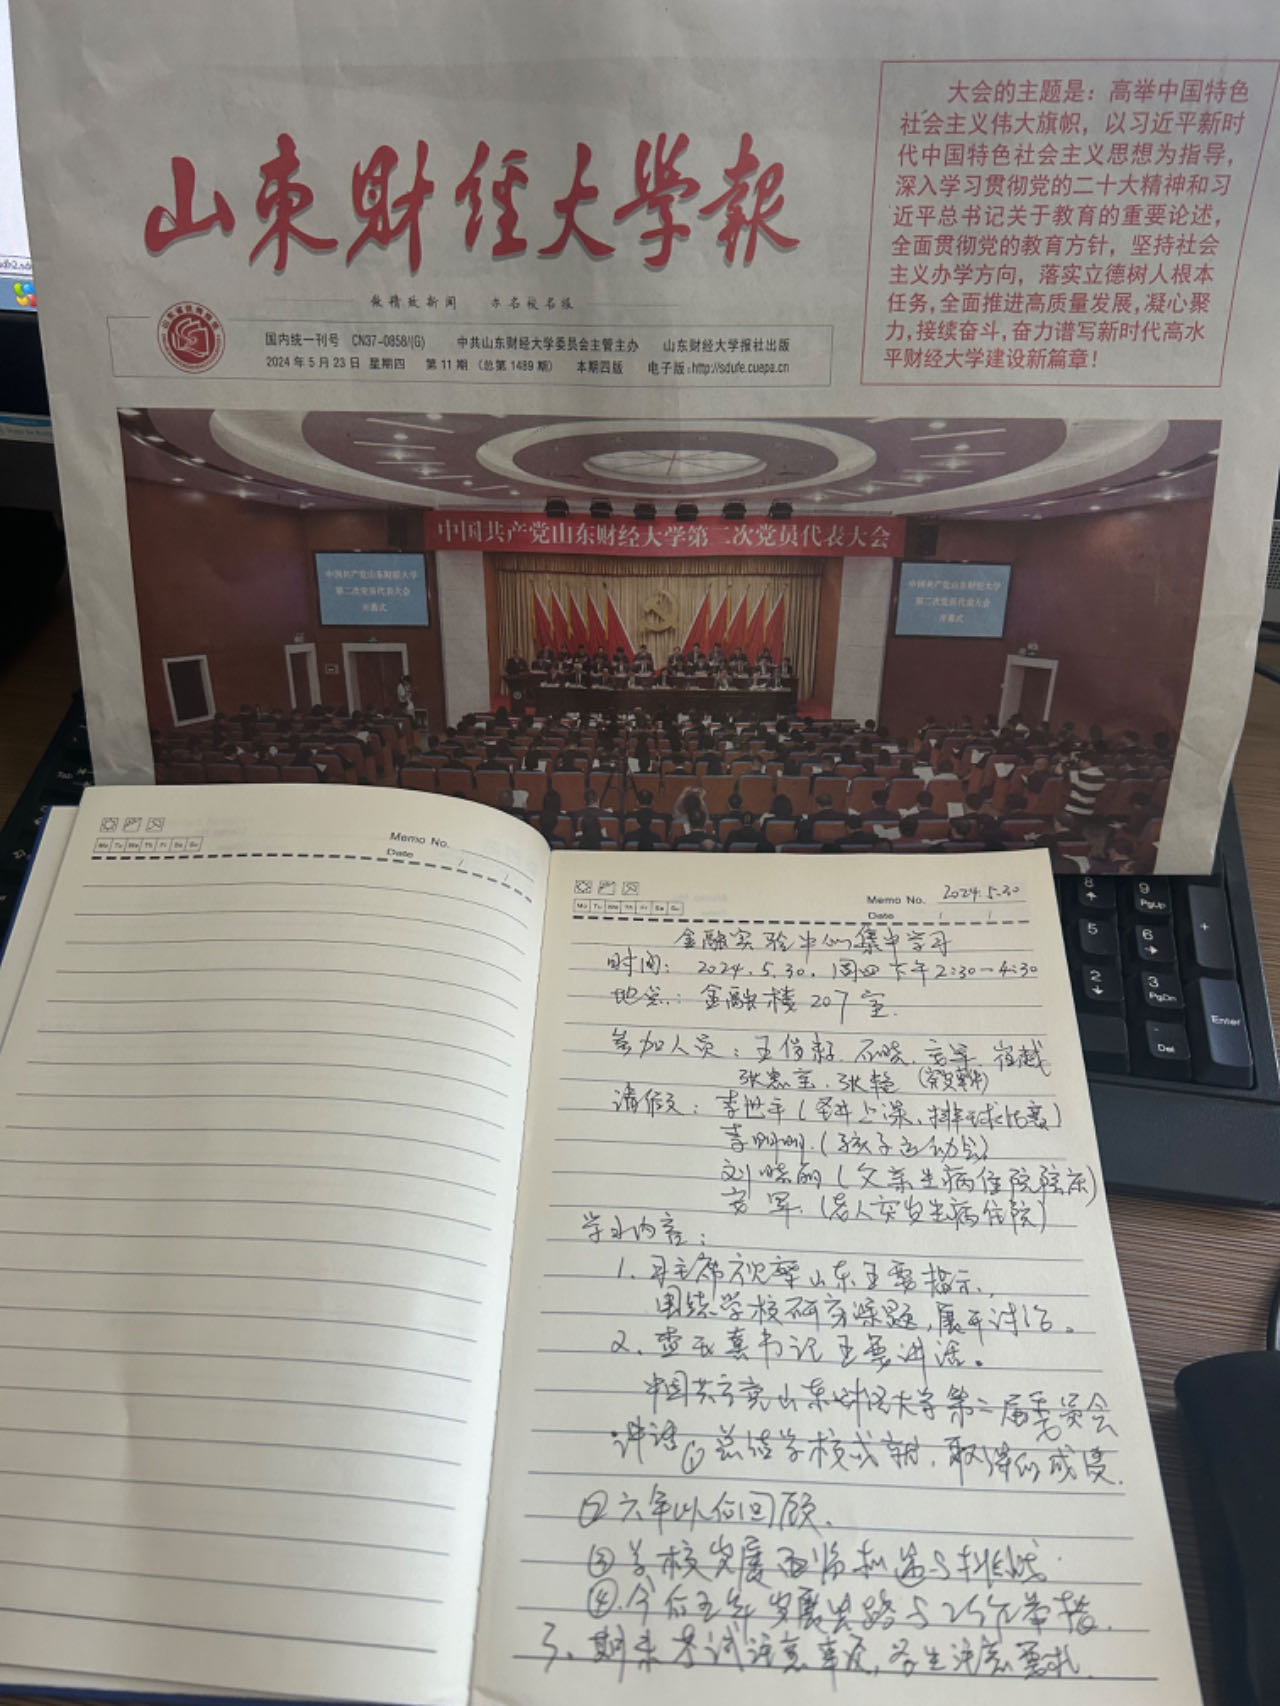 大会的主题是：高举中国特色
社会主义伟大旗帜，以习近平新时
代中国特色社会主义思想为指导，
深入学习贯彻党的二十大精神和习
近平总书记关于教育的重要论述，
全面贯彻党的教育方针，坚持社会
主义办学方向，落实立德树人根本
任务，全面推进高质量发展，凝心聚
力，接续奋斗，奋力谱写新时代高水
平财经大学建设新篇章！
山东财经大学报
做精致新闻 办名校名报
国内统一刊号 CN37-0858/(G) 中共山东财经大学委员会主管主办 山东财经大学报社出版
2024年5月23日 星期四 第11期 (总第1489期) 本期四版 电子版:http://sdufe.cuepa.cn
中国共产党山东财经大学第二次党员代表大会
中国共产党山东财经大学
第二次党员代表大会
开幕式
中国共产党山东财经大学
第二次党员代表大会
开幕式
Memo No.
Mo Tu We Th Fr Sa Su
Date / /
Memo No. 2024.5.30
Mo Tu We Th Fr Sa Su
Date / /
金融实验中心集中学习
时间：2024.5.30.周四下午2:30—4:30
地点：金融楼207室.
参加人员：王俊籽.石晓.安军.崔越
张忠宝.张艳
请假：李世平(上课、排球比赛)
李明明.(孩子运动会)
刘晓丽(父亲生病住院陪床)
安军.(老人突发生病住院)
学习内容：
1.习主席视察山东重要指示，
围绕学校研究课题，展开讨论。
2.书记重要讲话。
中国共产党山东财经大学第二届委员会
讲话①总结学校成就，取得的成绩.
②六年以后回顾.
③学校发展面临机遇与挑战.
④.今后五年发展思路与举措.
3、期末考试注意事项，考生注意要求.